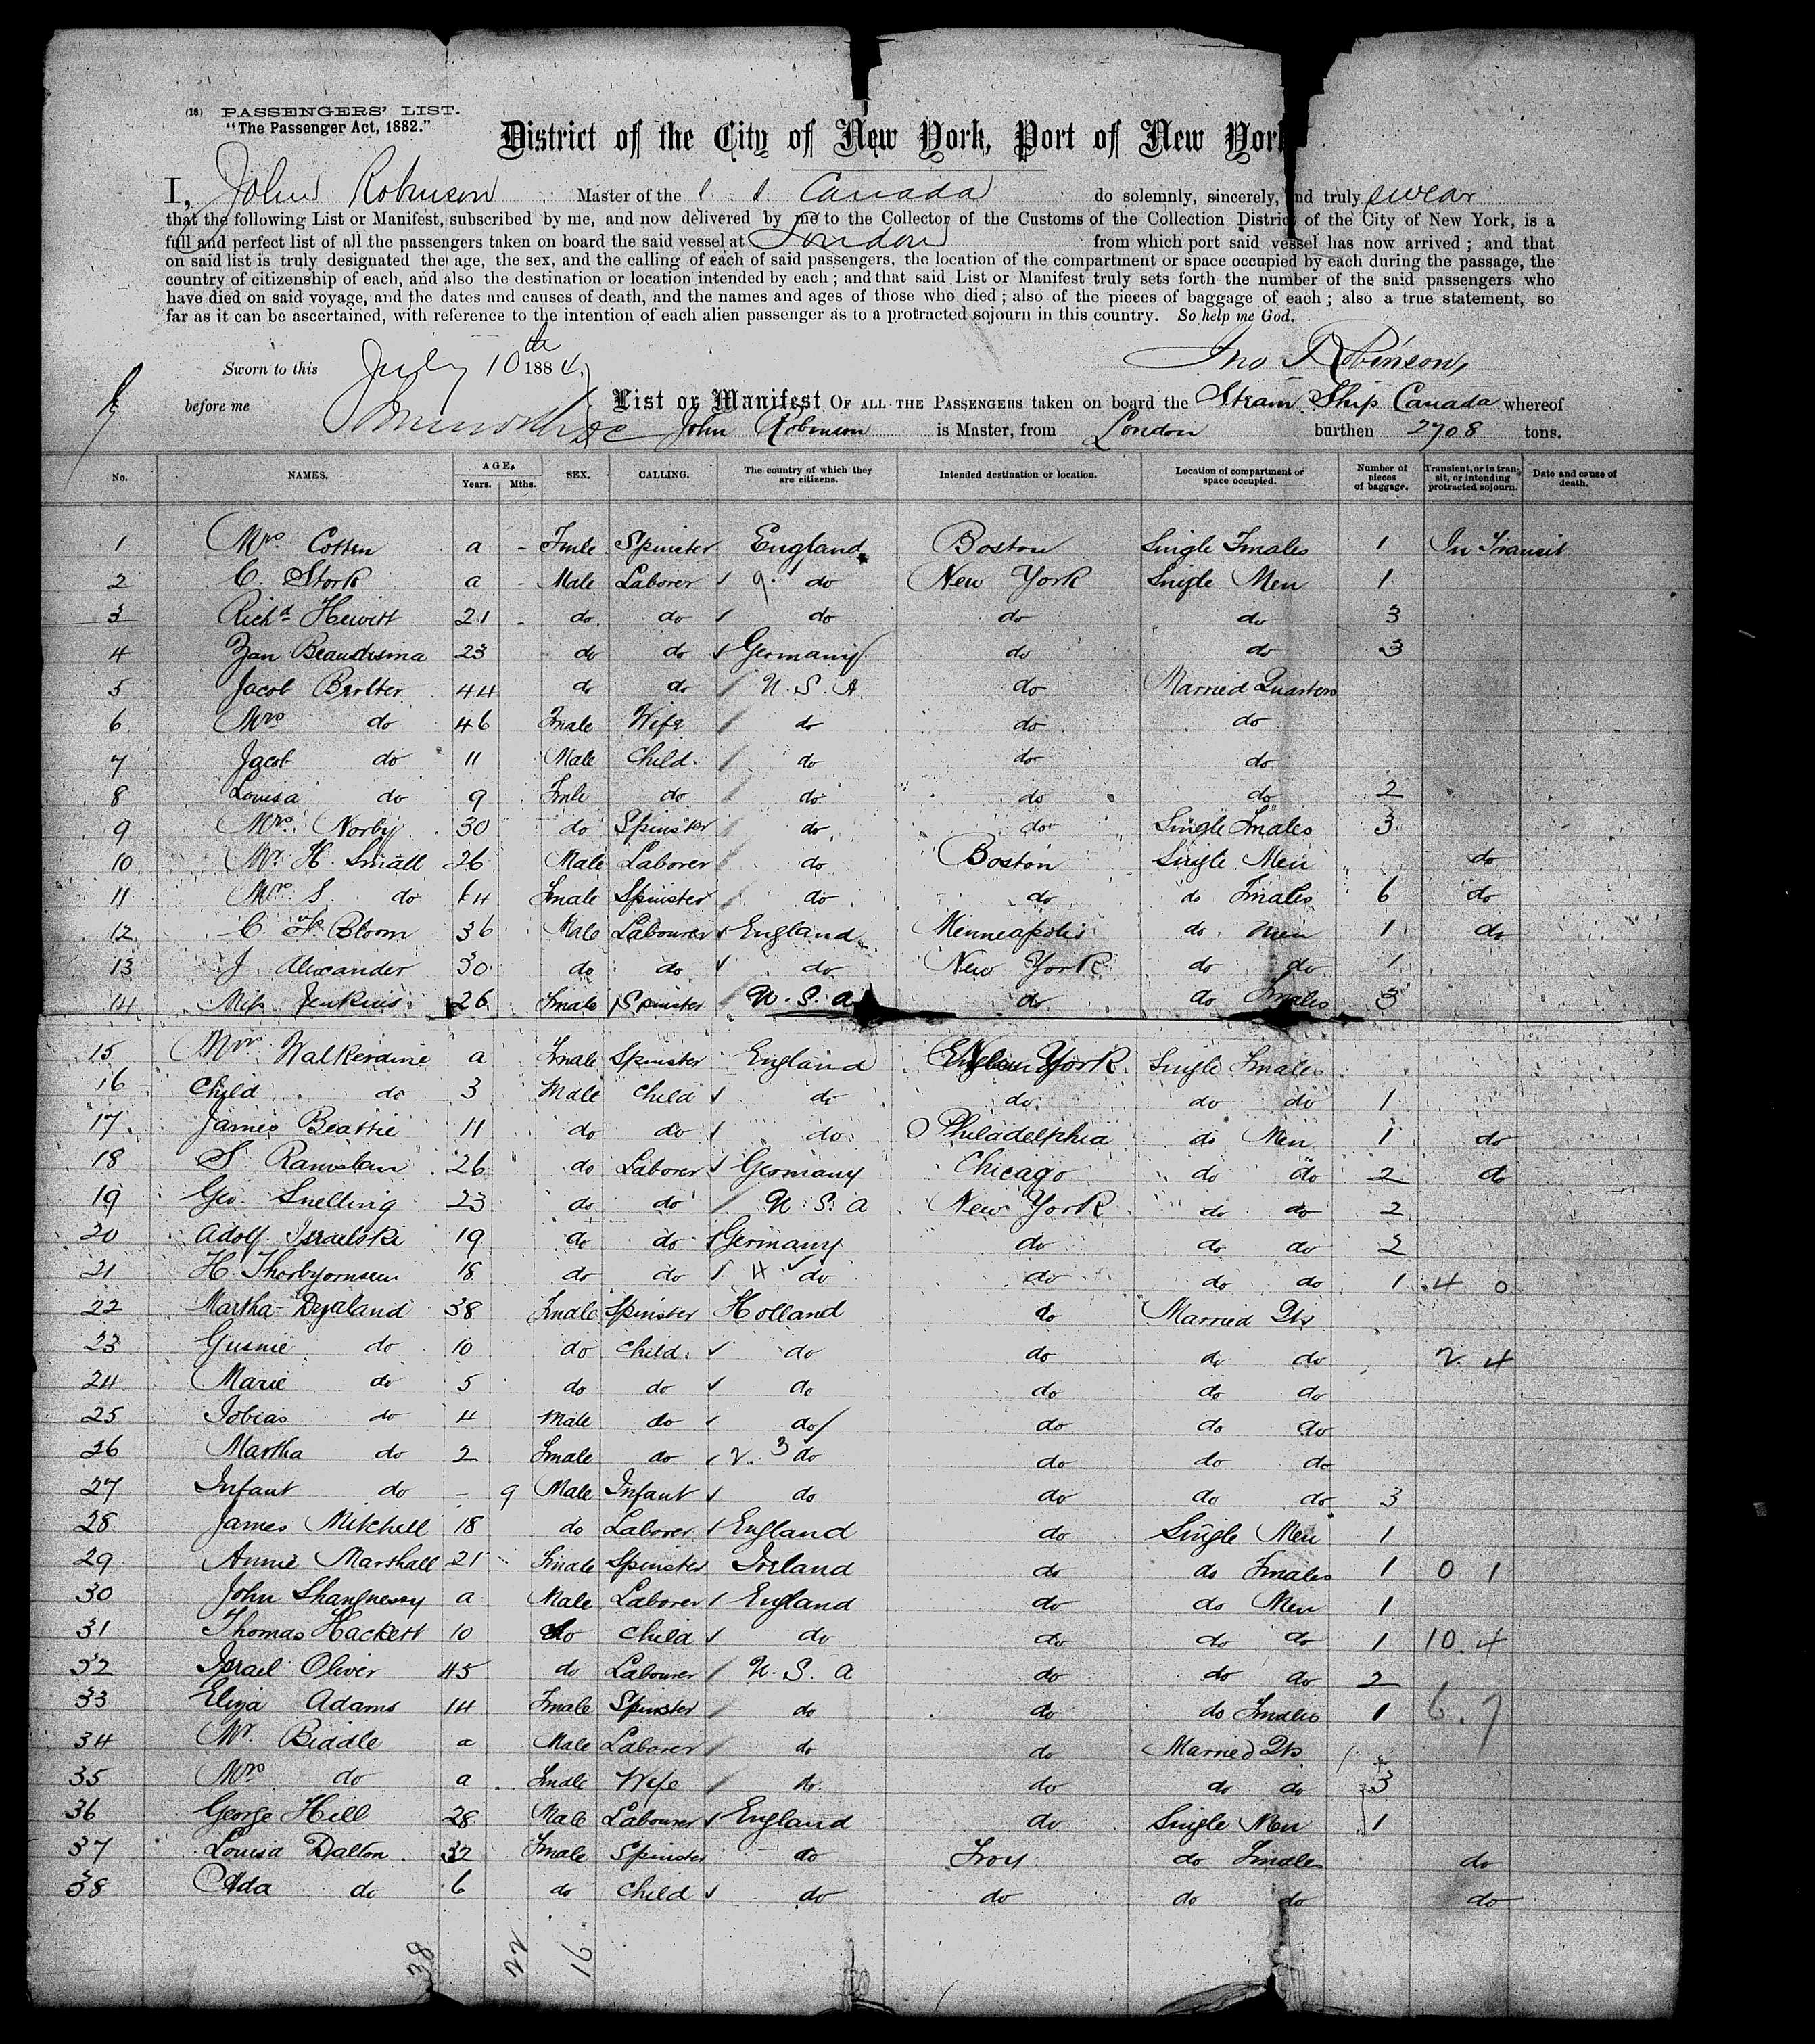 (18) PASSENGERS' LIST.
"The Passenger Act, 1882."
District of the City of New York, Port of New York
I, John Robinson Master of the S. S. Canada do solemnly, sincerely, and truly swear
that the following List or Manifest, subscribed by me, and now delivered by me to the Collector of the Customs of the Collection District of the City of New York, is a
full and perfect list of all the passengers taken on board the said vessel at London from which port said vessel has now arrived; and that
on said list is truly designated the age, the sex, and the calling of each of said passengers, the location of the compartment or space occupied by each during the passage, the
country of citizenship of each, and also the destination or location intended by each; and that said List or Manifest truly sets forth the number of the said passengers who
have died on said voyage, and the dates and causes of death, and the names and ages of those who died; also of the pieces of baggage of each; also a true statement, so
far as it can be ascertained, with reference to the intention of each alien passenger as to a protracted sojourn in this country. So help me God.
Sworn to this July 10th 1884. Jno Robinson,
before me List or Manifest OF ALL THE PASSENGERS taken on board the Steam Ship Canada whereof
John Robinson is Master, from London burthen 2708 tons.
No. NAMES. AGE. Years. Mths. SEX. CALLING. The country of which they are citizens. Intended destination or location. Location of compartment or space occupied. Number of pieces of baggage. Transient, or in transit, or intending protracted sojourn. Date and cause of death.
1 Mrs Cotten a - Fmle Spinster England Boston Single Fmales 1 In Transit
2 C. Stork a - Male Laborer 9 do New York Single Men 1
3 Richd Hewitt 21 - do do do do do 3
4 Zan 23 do do Germany do do 3
5 Jacob Brolter 44 do do U.S.A. do Married Quarters
6 Mrs do 46 Fmale Wife do do do
7 Jacob do 11 Male Child do do do
8 Louisa do 9 Fmle do do do do 2
9 Mrs Norby 30 do Spinster do do Single Fmales 3
10 Mr. H. Small 26 Male Laborer do Boston Single Men do
11 Mrs S. do 64 Fmale Spinster do do do Fmales 6 do
12 C. Bloom 36 Male Labourer England Minneapolis do Men 1 do
13 J. Alexander 30 do do do New York do do 1
14 Miss Jenkins 26 Fmale Spinster U.S.A do do Fmales 3
15 Mrs Walkerdine a Fmale Spinster England New York Single Fmales
16 Child do 3 Male Child do do do do 1
17 James Beattie 11 do do do Philadelphia do Men 1 do
18 S. Ramslau 26 do Laborer Germany Chicago do do 2 do
19 Geo. Snelling 23 do do U.S.A New York do do 2
20 Adolf Israelski 19 do do Germany do do do 2
21 H. Thorbyornsen 18 do do 4 do do do do 1 4 0
22 Martha Dyaland 38 Fmale Spinster Holland do Married Qts
23 Gusnie do 10 do Child do do do do 2. 4
24 Marie do 5 do do do do do do
25 Tobias do 4 Male do do do do do
26 Martha do 2 Fmale do 2. 3 do do do do
27 Infant do - 9 Male Infant do do do do 3
28 James Mitchell 18 do Laborer England do Single Men 1
29 Annie Marshall 21 Fmale Spinster Ireland do do Fmales 1 0 1
30 John Shaughnessy a Male Laborer England do do Men 1
31 Thomas Hackett 10 do Child do do do do 1 10. 4
32 Israel Oliver 45 do Labourer U.S. a do do do 2
33 Eliza Adams 14 Fmale Spinster do do do Fmales 1 6. 7
34 Mr. Biddle a Male Laborer do do Married Qts
35 Mrs do a Fmale Wife do do do do 3
36 George Hill 28 Male Labourer England do Single Men 1
37 Louisa Dalton 32 Fmale Spinster do Troy do Fmales do
38 Ada do 6 do Child do do do do do
38 22 16